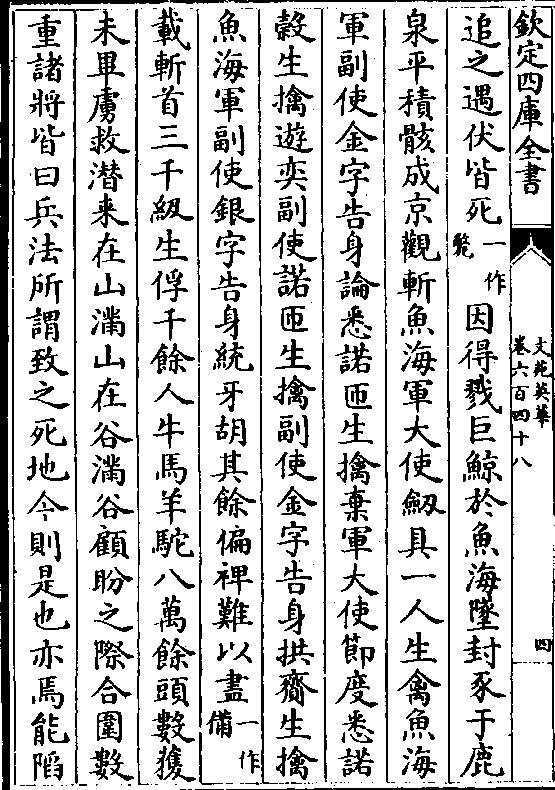 欽定四庫全書
文苑英華
卷六百四十八
四
追之遇伏皆死一作斃因得戮巨鯨於魚海墜封豕于鹿
泉平積骸成京觀斬魚海軍大使劒具一人生禽魚海
軍副使金字告身論悉諾匝生擒棄軍大使節度悉諾
榖生擒遊奕副使諾匝生擒副使金字告身拱齎生擒
魚海軍副使銀字告身統牙胡其餘偏裨難以盡一作備
載斬首三千級生俘千餘人牛馬羊駝八萬餘頭數獲
未畢虜救潛来在山滿山在谷滿谷顧盻之際合圍數
重諸將皆曰兵法所謂致之死地今則是也亦焉能陷